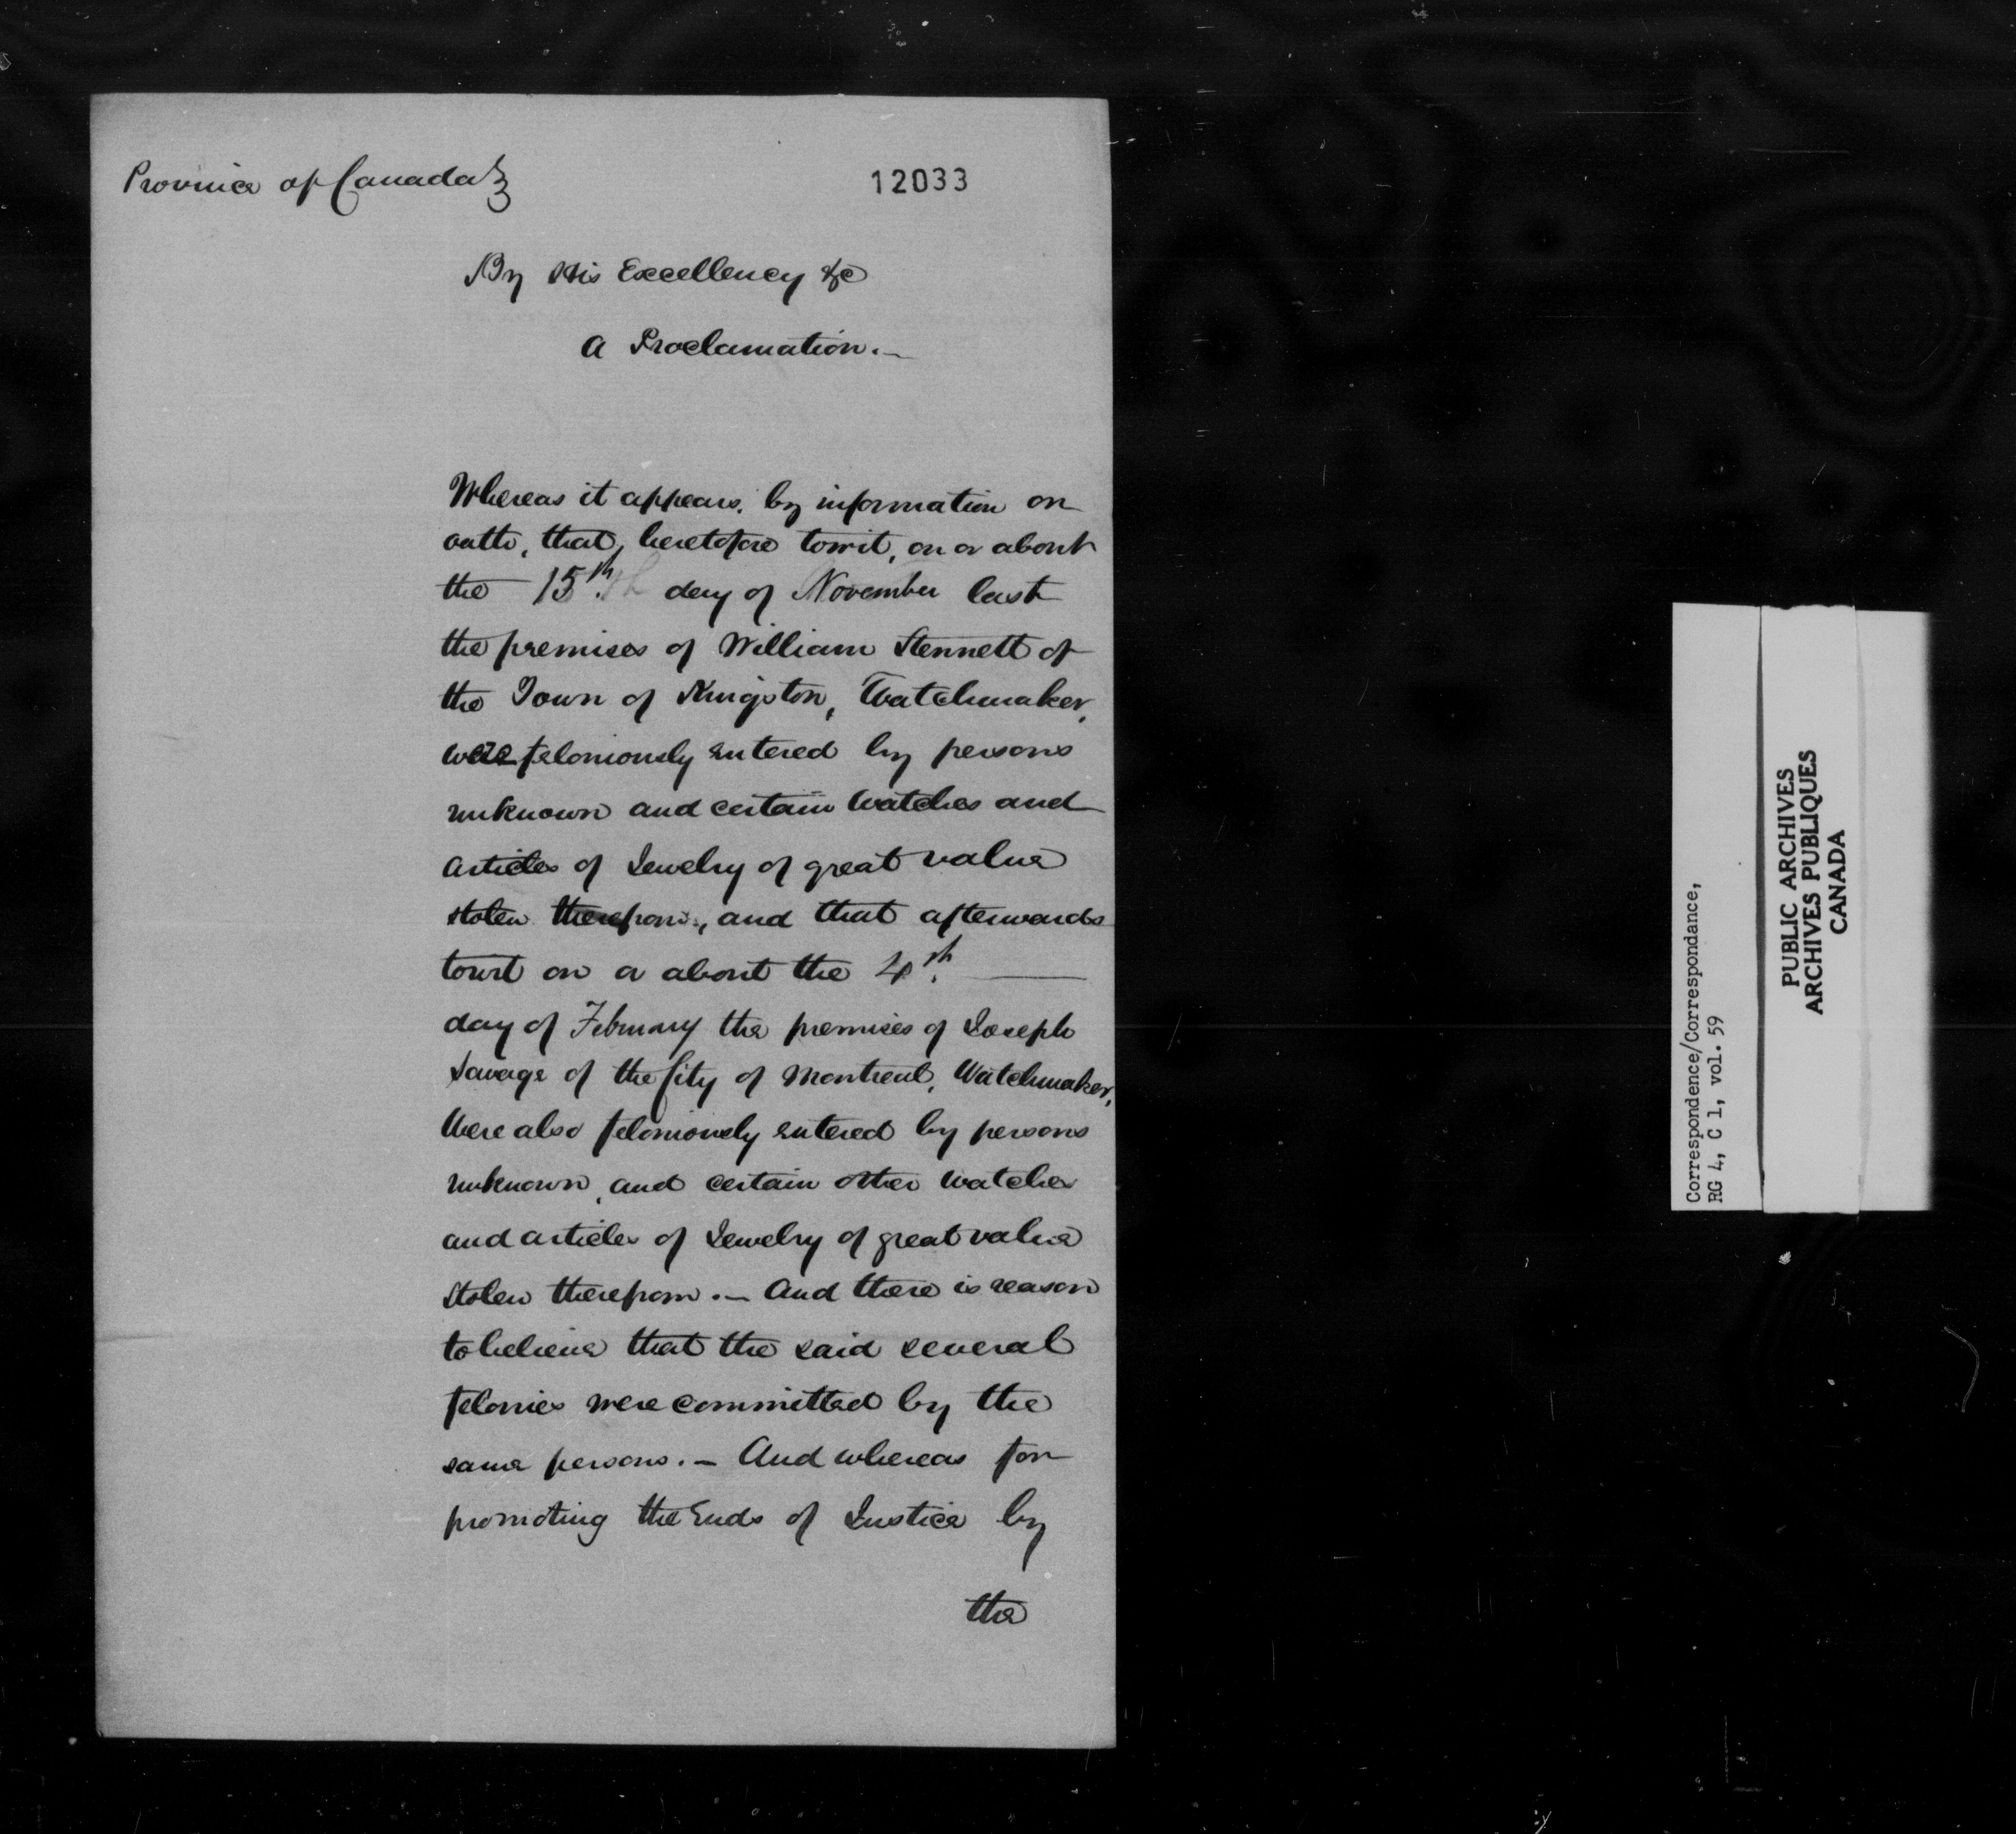 Province of Canada}
12033
By His Excellency &c
A Proclamation.—
Whereas it appears, by information on
oath, that, heretofore towit, on or about
the 15th. day of November last
the premises of William Stennett of
the Town of Kingston, Watchmaker,
were feloniously entered by persons
unknown and certain Watches and
articles of Jewelry of great value
stolen therefrom, and that afterwards
towit on or about the 4th.
day of February the premises of Joseph
Savage of the City of Montreal, Watchmaker,
Were also feloniously entered by persons
unknown, and certain other Watches
and articles of Jewelry of great value
stolen therefrom.— And there is reason
to believe that the said several
felonies were committed by the
same persons.— And whereas for
promoting the Ends of Justice by
the
Correspondence/Correspondance,
RG 4, C 1, vol. 59
PUBLIC ARCHIVES
ARCHIVES PUBLIQUES
CANADA